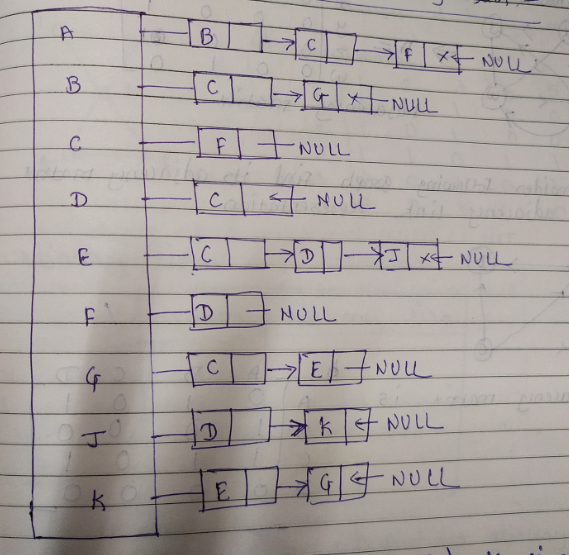 A B C F X NULL
B C G X NULL
C F NULL
D C NULL
E C D J X NULL
F D NULL
G C E NULL
J D K NULL
K E G NULL